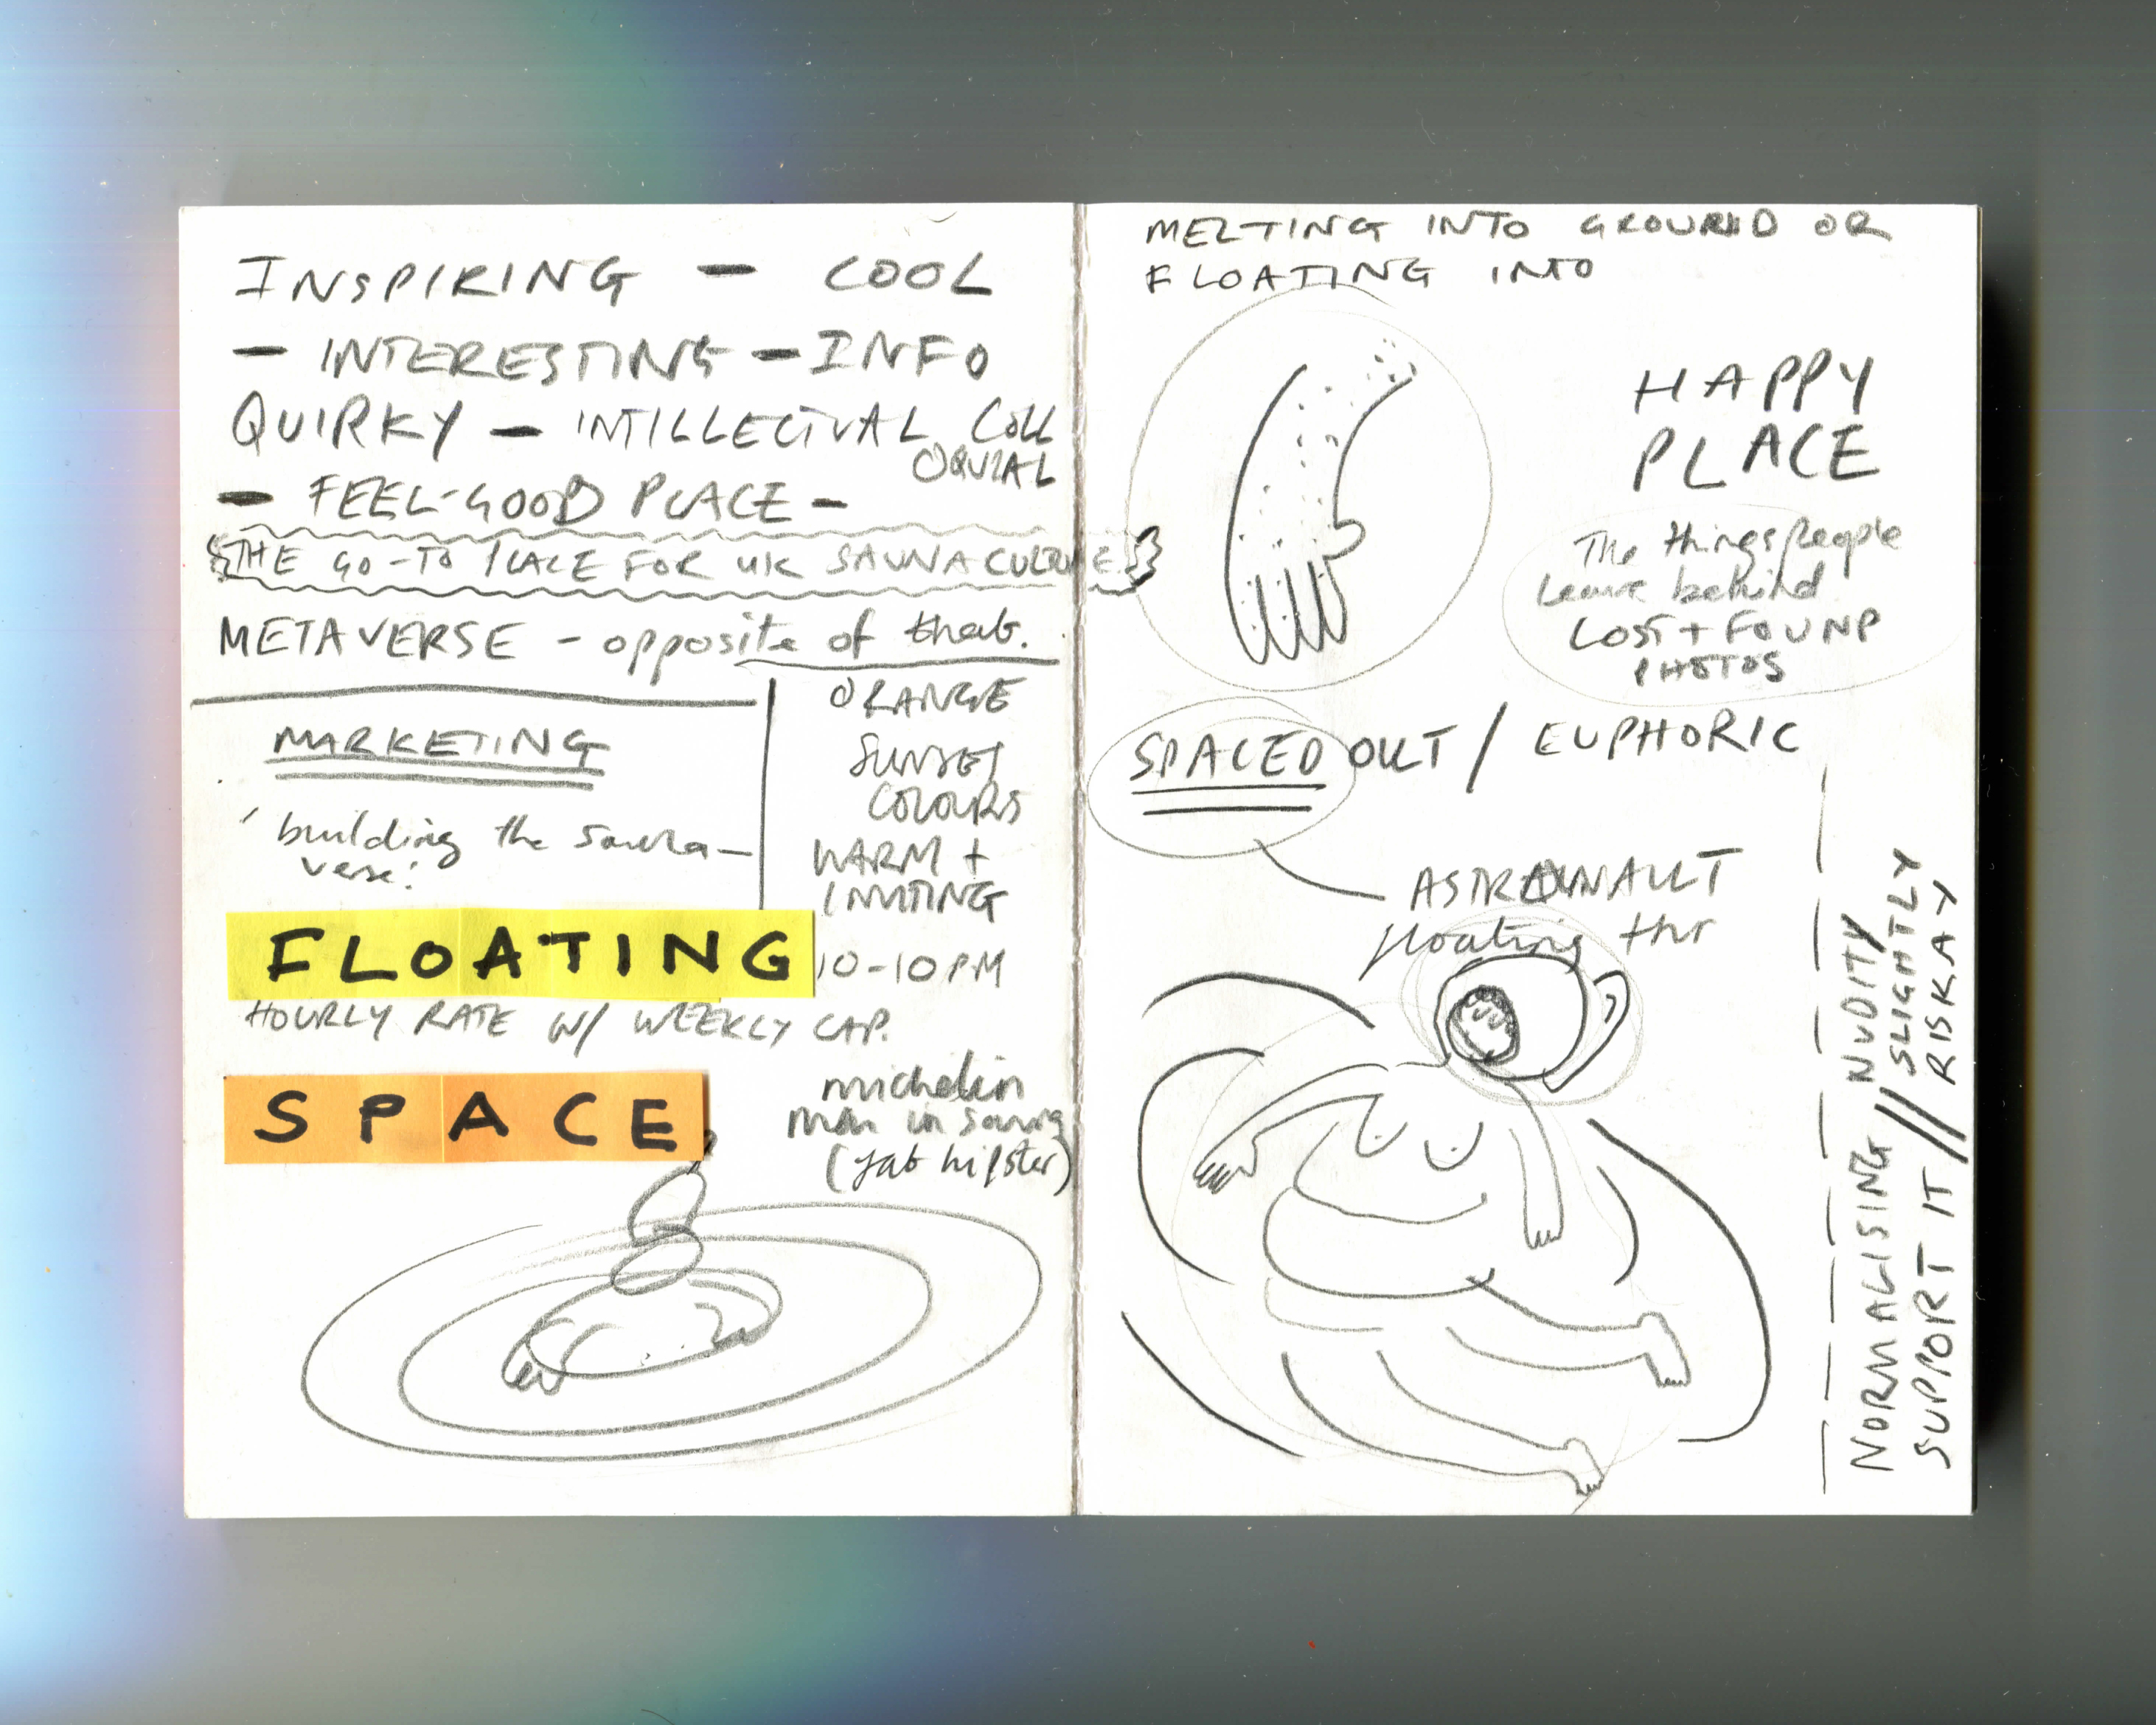 INSPIRING — COOL
— INTERESTING — INFO
QUIRKY — INTILLECTUAL COLL
OQUIAL
— FEEL-GOOD PLACE —
THE GO-TO PLACE FOR UK SAUNA CULTURE
METAVERSE - opposite of that.
MARKETING
'building the sauna-
verse!
ORANGE
SUNSET
COLOURS
WARM +
INVITING
FLOATING
10-10PM
HOURLY RATE W/ WEEKLY CAP.
SPACE
michelin
man in sauna
(fat hipster)
MELTING INTO GROUND OR
FLOATING INTO
HAPPY
PLACE
The things people
leave behind
LOST + FOUND
PHOTOS
SPACED OUT / EUPHORIC
ASTRONAULT
floating thr
NORMALISING NUDITY/
SUPPORT IT // SLIGHTLY
RISKAY